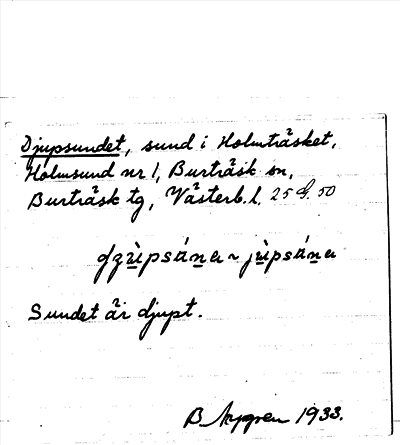 Djupsundet, sund i Holmträsket,
Holmsund nr 1, Burträsk sn,
Burträsk tg, Västerb. l. 25 G. 50
Sundet är djupt.
B Nygren 1933.